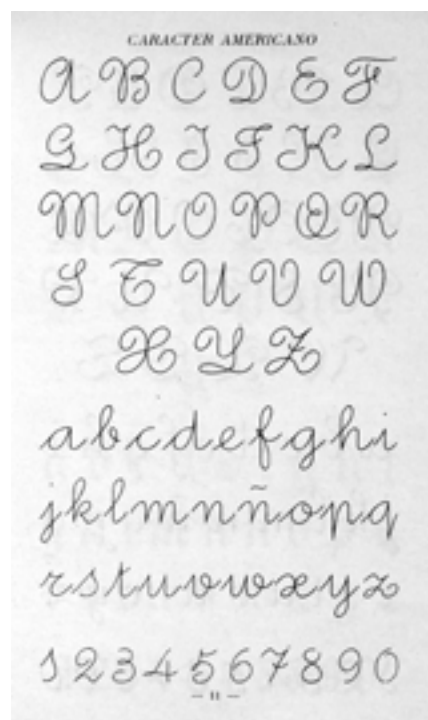 CARACTER AMERICANO
A B C D E F
G H I J K L
M N O P Q R
S T U V W
X Y Z
a b c d e f g h i
j k l m n ñ o p q
r s t u v w x y z
1 2 3 4 5 6 7 8 9 0
— 11 —